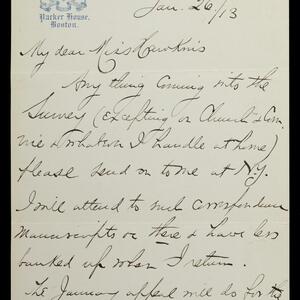 Parker House,
Boston.
Jan. 26/13
My dear Miss Hawkins
Any thing coming into the
Survey (excepting on Church & Com
mie & whatever I handle at home)
please send on to me at N.Y.
I will attend to such correspondence
manuscripts or there & have less
banked up when I return.
The January appeal will do for the